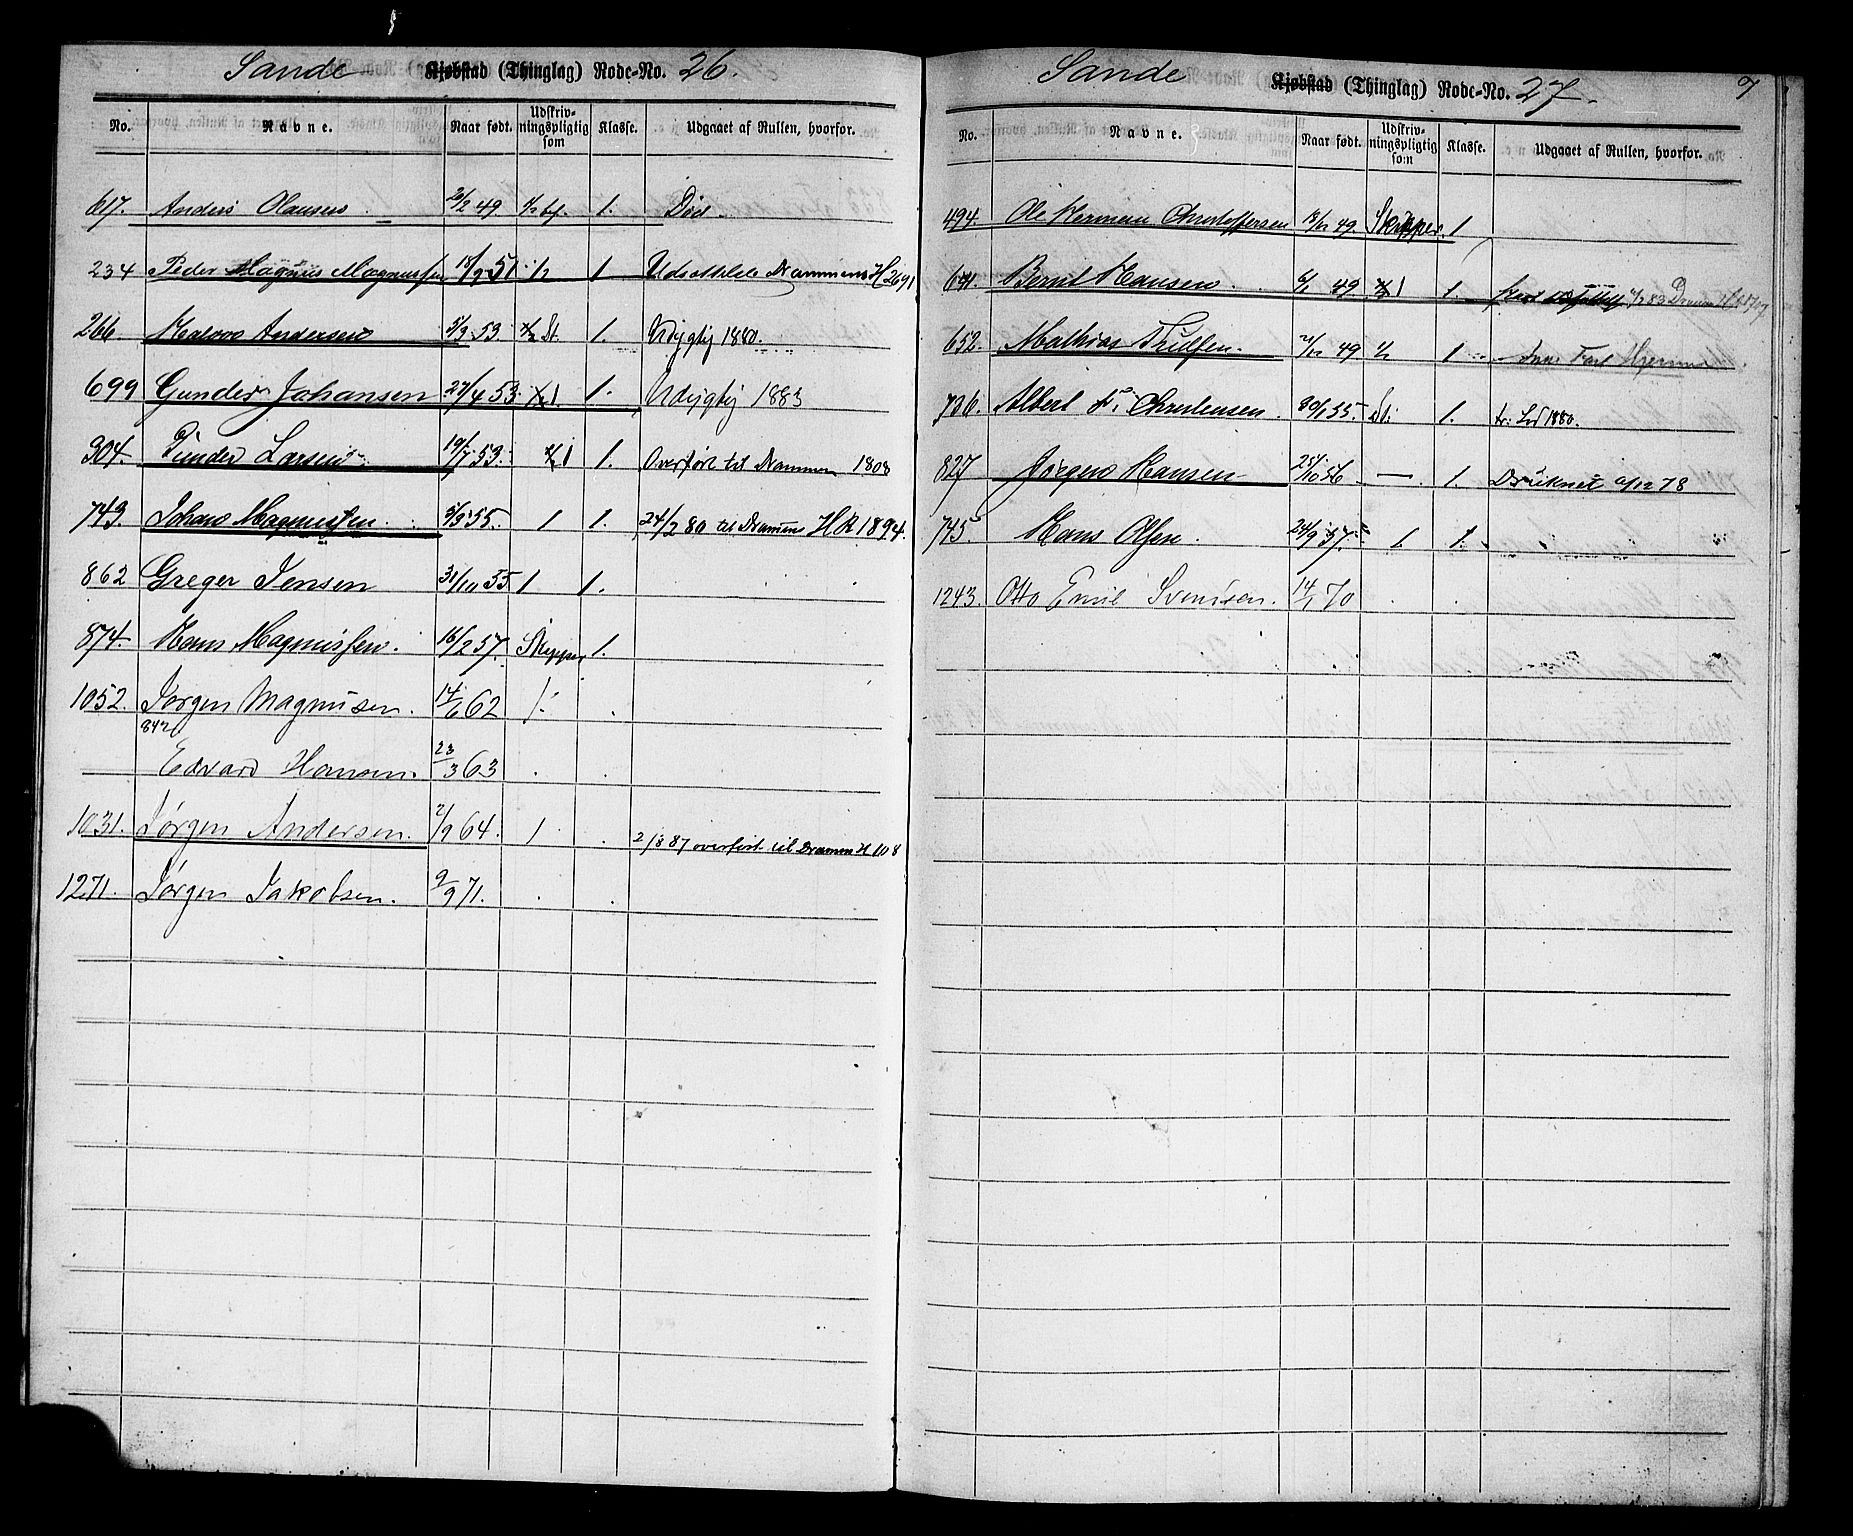 Sande Kjøbstad (Thinglag) Rode-No. 26.
No. Navne. Naar født. Udskrivningspligtig som Klasse. Udgaaet af Rullen, hvorfor.
617. Anders Olausen 49 1. Død.
234 Peder Magnus Magnussen 18/9 51 1/2 1 Drammens H 2691
266. Andersen 5/3 53 St. 1. Udygtig 1880.
699 Gunder Johansen 27/4 53 1 1. Udygtig 1883
304. Gunder Larsen 19/7 53. 1 1. Overført til Drammen 1808
743. Johans Magnussen 3/3 55. 1 1. 24/2 80 til Drammens H R 1894.
862 Greger Jensen 31/10 55 1 1.
874. Hans Magnussen. 16/2 57. Skipper 1.
1052. Jørgen Magnusen. 14/6 62 1.
842 Edvard Hansen. 23/3 63
1031. Jørgen Andersen. 2/9 64. 1 2/3 87 overført til Drammen H 108
1271. Jørgen Jakobsen. 9/9 71.
Sande Kjøbstad (Thinglag) Rode-No. 27. 7
No. Navne. Naar født. Udskrivningspligtig som Klasse. Udgaaet af Rullen, hvorfor.
494. Ole Herman Christoffersen 49 Skipper. 1
Bernt Hansen 49 1 1. 83
652. Mathias 49 1/2 1
736. Albert Christensen. 30/1 55. St: 1. tr: Led 1880.
827 Jørgen Hansen 25/10 56 — 1. Druknet 78
745. Hans Olsen. 24/9 57. 1 1.
1243. Otto Emil Svendsen. 14/1 70